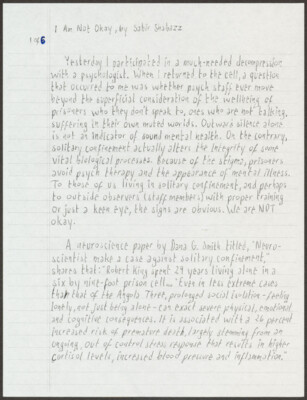 I Am Not Okay, by Sabir Shabazz
1 of 6
Yesterday I participated in a much-needed decompression
with a psychologist. When I returned to the cell, a question
that occurred to me was whether psych staff ever move
beyond the superficial consideration of the wellbeing of
prisoners who they don't speak to, ones who are not talking,
suffering in their own muted worlds. Outward silence alone
is not an indicator of sound mental health. On the contrary,
solitary confinement actually alters the integrity of some
vital biological processes. Because of the stigma, prisoners
avoid psych therapy and the appearance of mental illness.
To those of us living in solitary confinement, and perhaps
to outside observers (staff members) with proper training
or just a keen eye, the signs are obvious. We are NOT
okay.
A neuroscience paper by Dana G. Smith titled, "Neuro-
scientist make a case against solitary confinement,"
shares that: "Robert King spent 29 years living alone in a
six by nine-foot prison cell..." "Even in less extreme cases
than that of the Angola Three, prolonged social isolation-feeling
lonely, not just being alone-can exact severe physical, emotional,
and cognitive consequences. It is associated with a 26 percent
increased risk of premature death, largely stemming from an
ongoing, out of control stress response that results in higher
cortisol levels, increased blood pressure and inflammation."